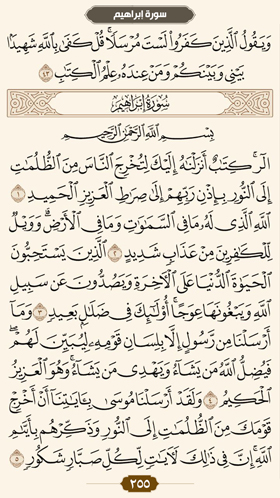 سورة إبراهيم
وَيَقُولُ ٱلَّذِينَ كَفَرُوا۟ لَسْتَ مُرْسَلًا ۚ قُلْ كَفَىٰ بِٱللَّهِ شَهِيدًۢا
بَيْنِى وَبَيْنَكُمْ وَمَنْ عِندَهُۥ عِلْمُ ٱلْكِتَٰبِ ٤٣
سُورَةُ إِبْرَاهِيمَ
بِسْمِ ٱللَّهِ ٱلرَّحْمَٰنِ ٱلرَّحِيمِ
الٓر ۚ كِتَٰبٌ أَنزَلْنَٰهُ إِلَيْكَ لِتُخْرِجَ ٱلنَّاسَ مِنَ ٱلظُّلُمَٰتِ
إِلَى ٱلنُّورِ بِإِذْنِ رَبِّهِمْ إِلَىٰ صِرَٰطِ ٱلْعَزِيزِ ٱلْحَمِيدِ ١
ٱللَّهِ ٱلَّذِى لَهُۥ مَا فِى ٱلسَّمَٰوَٰتِ وَمَا فِى ٱلْأَرْضِ ۗ وَوَيْلٌ
لِّلْكَٰفِرِينَ مِنْ عَذَابٍ شَدِيدٍ ٢ ٱلَّذِينَ يَسْتَحِبُّونَ
ٱلْحَيَوٰةَ ٱلدُّنْيَا عَلَى ٱلْءَاخِرَةِ وَيَصُدُّونَ عَن سَبِيلِ
ٱللَّهِ وَيَبْغُونَهَا عِوَجًا ۚ أُو۟لَٰٓئِكَ فِى ضَلَٰلٍۭ بَعِيدٍ ٣ وَمَآ
أَرْسَلْنَا مِن رَّسُولٍ إِلَّا بِلِسَانِ قَوْمِهِۦ لِيُبَيِّنَ لَهُمْ ۖ
فَيُضِلُّ ٱللَّهُ مَن يَشَآءُ وَيَهْدِى مَن يَشَآءُ ۚ وَهُوَ ٱلْعَزِيزُ
ٱلْحَكِيمُ ٤ وَلَقَدْ أَرْسَلْنَا مُوسَىٰ بِـَٔايَٰتِنَآ أَنْ أَخْرِجْ
قَوْمَكَ مِنَ ٱلظُّلُمَٰتِ إِلَى ٱلنُّورِ وَذَكِّرْهُم بِأَيَّىٰمِ
ٱللَّهِ ۚ إِنَّ فِى ذَٰلِكَ لَءَايَٰتٍ لِّكُلِّ صَبَّارٍ شَكُورٍ ٥
٢٥٥